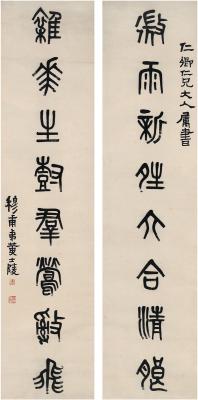 仁卿仁兄大人屬書
微雨新晴六合清朗
雜華生樹羣鶯亂飛
穆甫弟黃士陵